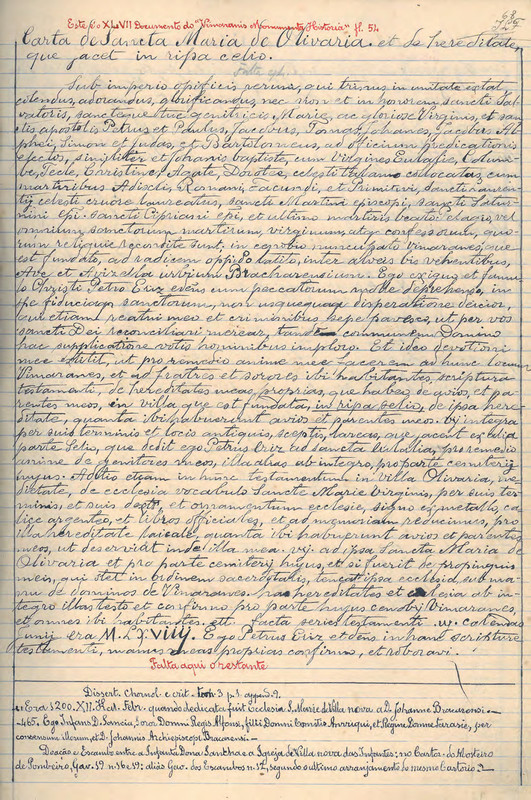 Este é o XLVII Documento do "Vimaranis Monumenta Historia", fl. 51
Carta de Sancta Maria de Olivaria et de hereditate
que jacet in ripa celio.
Sub imperio opificis rerum, qui trinus in unitate extat
colendus, adorandus, glorificandus nec non et in honorem sancti Sal-
vatoris, sancteque genitricis Marie, ac gloriose Virginis, et san
ctis apostolis Petrus et Paulus, Jacobus, Tomas, Johanes, Jacobus Al-
phei, Simon et Judas, et Bartolomeus, ad officium predicationis
efectos, simul et Johanis baptiste, cum Virgines Eulalie, Colum-
be, Tecle, Christine, Agate, Dorotee, celesti talamo collocatas, cum
martiribus Adiscli, Romani, Facundi, et Primitivi, sancti Lauren-
tij celesti cruore laureatus, sancti Martini episcopi, sancti Satur-
nini epi. sancti Cipriani epi, et ultimo martiris beato Pelagio, vel
omnium sanctorum martirum, virginum, atq confessorum, quo-
rum reliquie recondite sunt, in cenobio nuncupato Vimaranes, que
est fundato, ad radicem oppido latito, inter alveis bis vehentibus,
Ave et Avizella urbium Bracharensium. Ego exiguus et famu-
lo Christi Petro Eriz etenim cum peccatorum mole deprehenso, in
spe fiduciaq sanctorum, non usquequaq disperatione deicior,
qui etiam reatui meo et criminibus sepe pavesco, ut per vos
sancti Dei reconciliari merear, tandem communem Domino
hac supplicatione votis hominibus imploro. Et ideo devotioni
mee extitit, ut pro remedio anime mee facerem ad hunc locum
Vimaranes, et ad fratres et sorores ibi habitantes, scriptura
testamenti, de hereditates meas, proprias, que habeo de avios, et pa-
rentes meos, in villa que est fundata, in ripa Selio, de ipsa here-
ditate, quanta ibi habuerunt avios et parentes meos. VIª integra
per suis terminis et locis antiquis, exceptis, larcas, que jacent ex alia
parte Selio, que dedit ego Petrus Eriz ad sancta Eolalia, pro remedio
anime de genitores meos, illa alias ab integro, pro parte cemiterij
hujus. Addo etiam in hunc testamentum in Villa Olivaria, me-
dietate, de ecclesia vocabulo Sancte Marie Virginis, per suis ter-
minis, et suis dextris et ornamentum ecclesie, signo ex metallo, ca
lice argenteo, et libros officiales, et ad memoriam reducimus, pro
illa hereditate laicale, quanta ibi habuerunt avios et parentes
meos, ut deserviat inde illa mea VIª ad ipsa Sancta Maria de
Olivaria et pro parte cemiterij hujus, et si fuerit de propinquis
meis, qui stet in ordinem sacerdotalis, teneat ipsa ecclesia sub ma-
nu de dominos de Vimaranes. has hereditates et ecclesia ab in-
tegro illas testo et confirmo pro parte hujus cenobij Vimaranes,
et omnes ibi habitantes. ett. Facta series testamenti IV. calendas
junij era M.C.X.VIIIJ. Ego Petrus Eriz etdens in hanc scripture
testamenti, manus meas proprias confirmo, et roboravi.
Falta aqui o restante
Dissert. Chronol e crit. Tom 3 p. 1. append. 2.
Era 1200. XII. Kal. Febr. quando dedicata fuit Ecclesia S. Marie de Villa nova a D. Johanne Bracarensi.—
—465. Ego Infans D. Sancia, Soror Domni Regis Alfonsi, filii Domni Comitis Anrriqui, et Regine Donne Tarasie, per
consensum illorum, et D. Johannis Archiepiscopi Bracarensi.—
Doação e Escambo entre a Infanta Dona Sancha e a Igreja de Villa nova das Infantes: no Cartor. do Mosteiro
de Pombeiro, Gav. 19 n. 16 e 19: aliás Gav. dos Escambos n. 12, segundo o ultimo arranjamento do mesmo Cartorio.